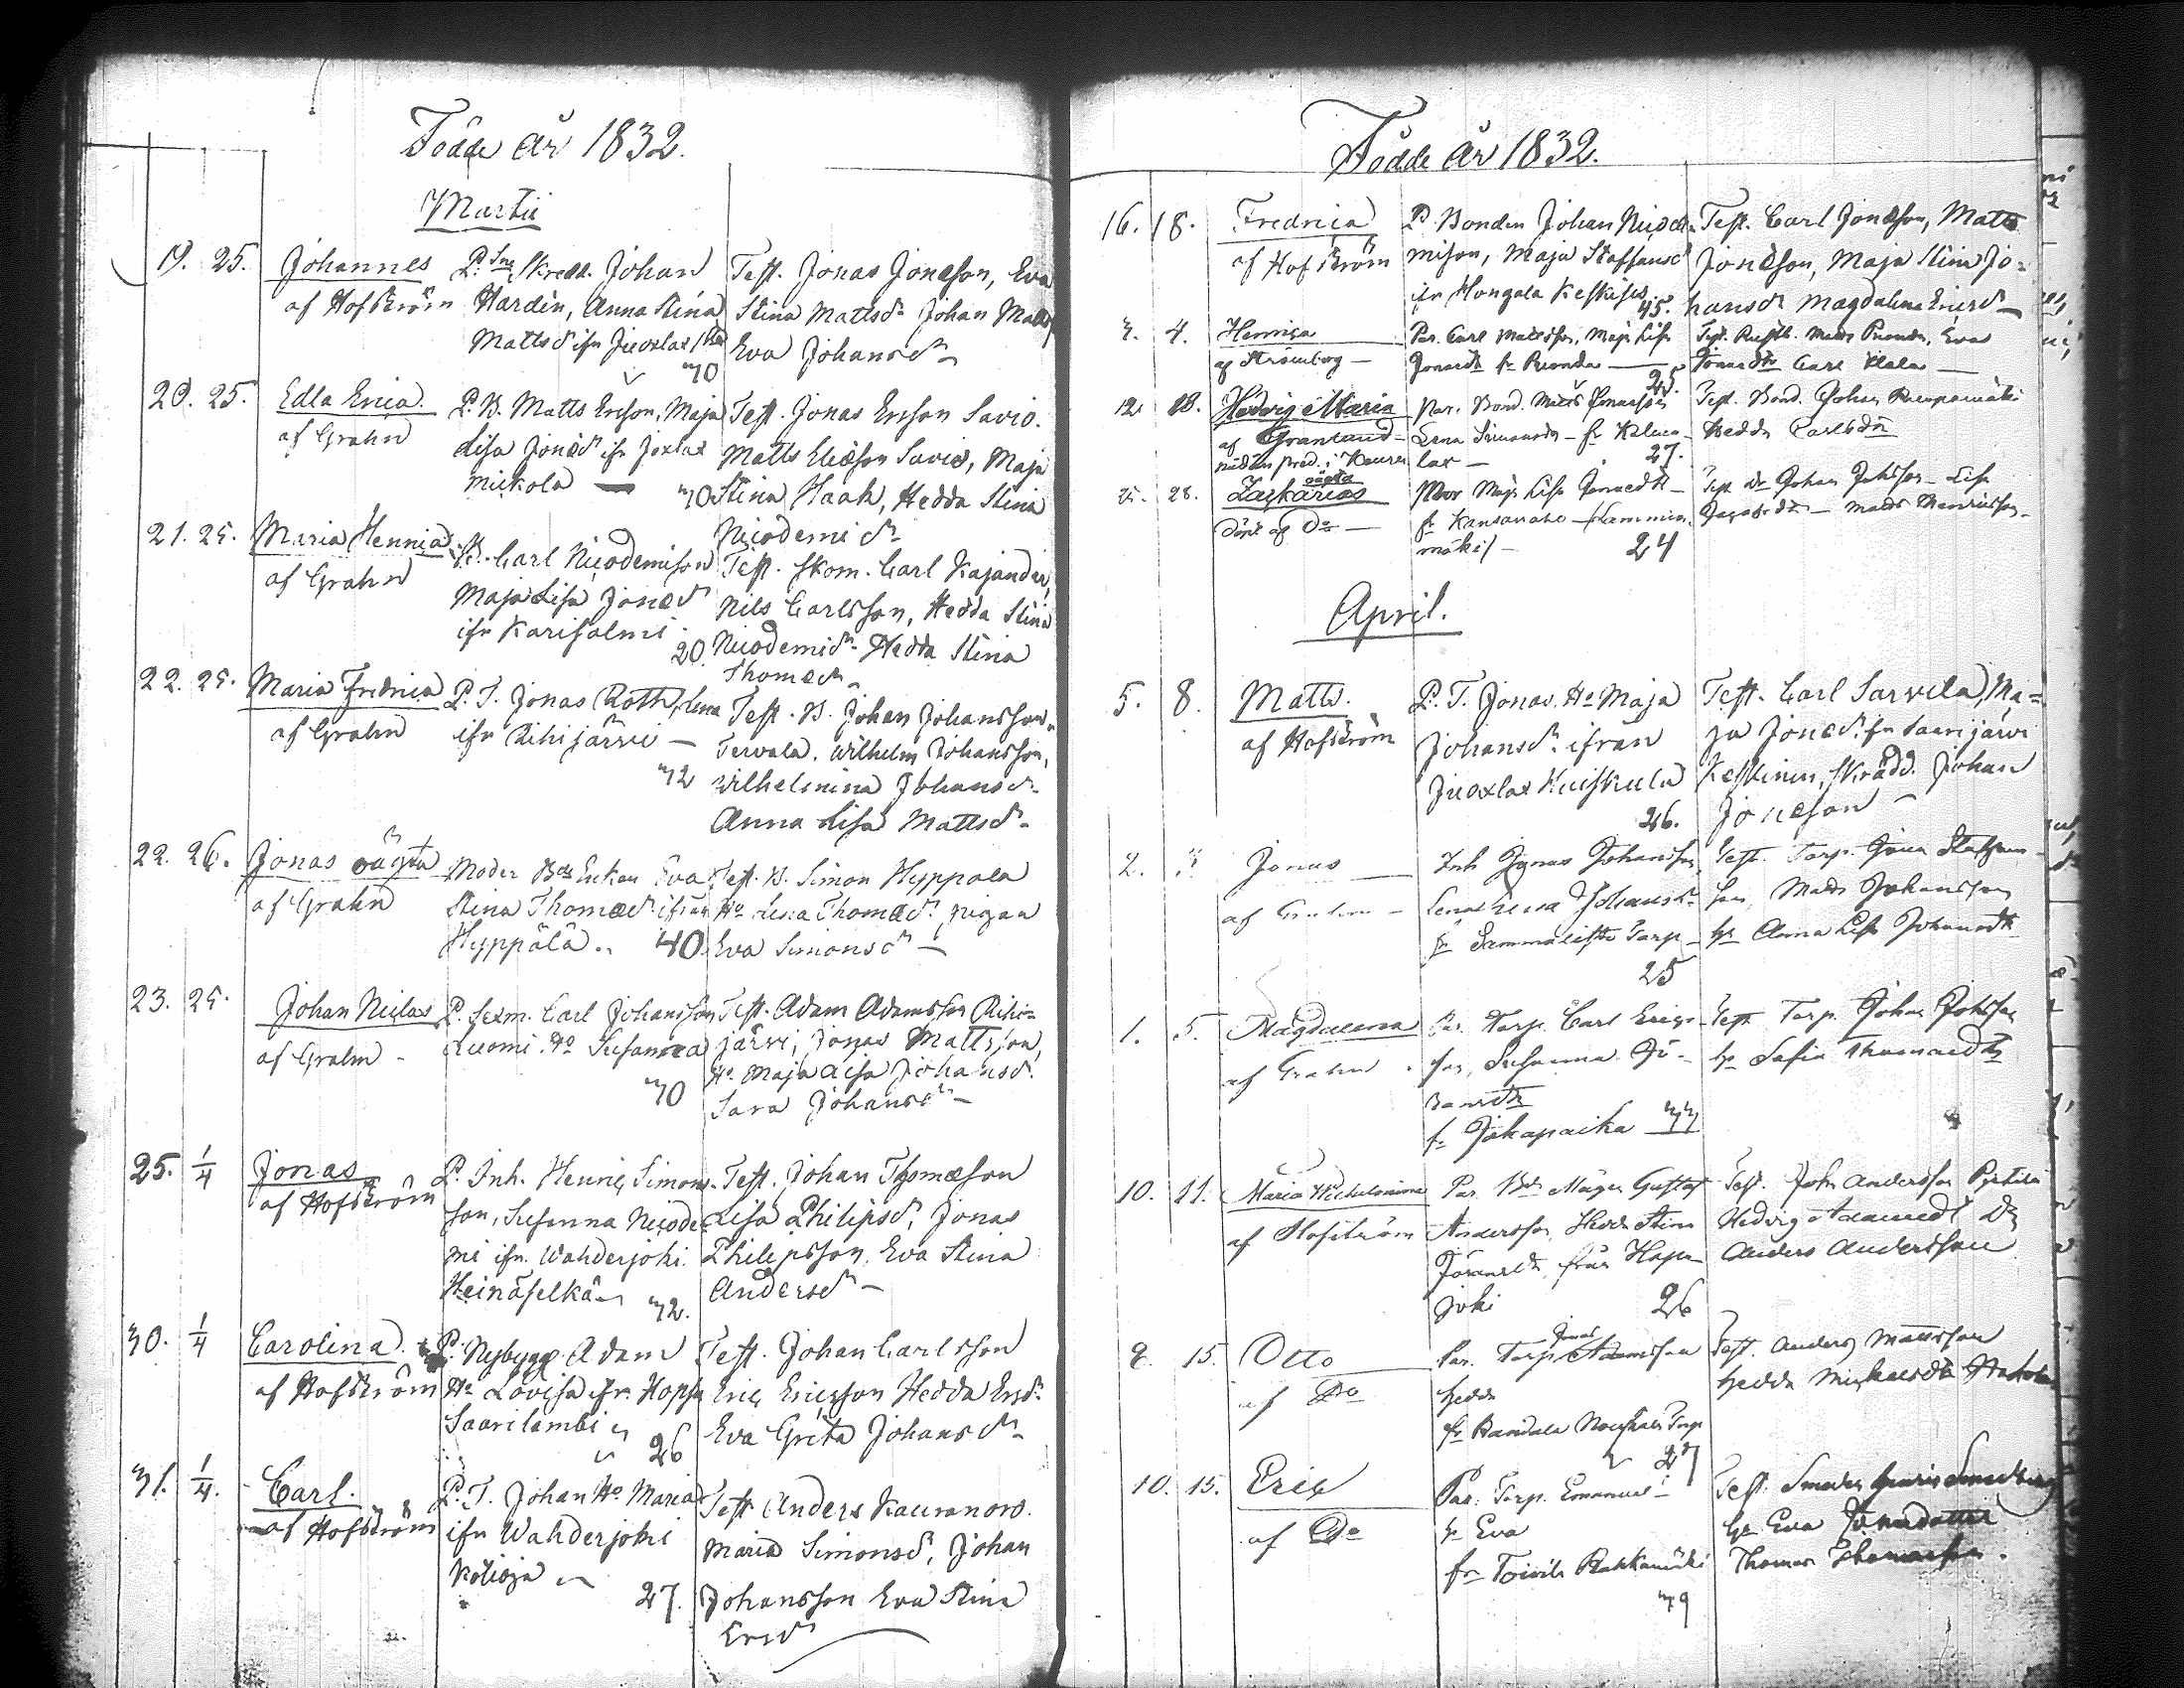 Födde år 1832.
Martii
19. 25. Johannes
af Hofström
P. Skredd. Johan
Hardén, Anna Stina
Mattsdr ifr Juoxlax
30
Test. Jonas Jonæson, Eva
Stina Mattsdr Johan Matts
Eva Johansdr
20. 25. Edla Erica
af Grahn
P. B. Matts Ericson, Maja
Lisa Jonædr ifr Joxlax
Mickola
30
Test. Jonas Ericson Savio.
Matts Eliæson Savio, Maja
Stina Haah, Hedda Stina
Nicodemi dr
21. 25. Maria Hennica
af Grahn
P. Carl Nicodemison
Maja Lisa Jonædr
ifr Karisalmi
20
Test. Skom. Carl Kajander,
Nils Carlsson, Hedda Stina
Nicodemidr Hedda Stina
Thomædr
22. 25. Maria Fredrica
af Grahn
P. T. Jonas Roth, Lena
ifr Rihijärvi
32
Test. B. Johan Johansson
Tervala. Wilhelm Johansson,
Wilhelmina Johansdr
Anna Lisa Mattsdr
22. 26. Jonas oägta
af Grahn
Moder Bde Enkan Eva
Stina Thomædr ifrån
Hyppälä 40
Test. B. Simon Hyppälä
Ho Lena Thomædr, pigan
Eva Simonsdr
23. 25. Johan Niclas
af Grahn
P. Sexm. Carl Johansson
Luomi. Ho Susanna
30
Test. Adam Adamsson Rihi-
järvi, Jonas Mattsson,
Ho Maja Lisa Johansdr
Sara Johansdr
25. 1/4 Jonas
af Hofström
P. Inh. Henric Simon-
son, Susanna Nicode
mi ifr. Wahderjoki
Heinäselkä
32.
Test. Johan Thomæson
Lisa Philipsdr, Jonas
Philipsson, Eva Stina
Andersdr
30. 1/4 Carolina
af Hofström
P. Nybygg. Adam
Ho Lovisa ifr. Hopsu
Saarilambi
26
Test. Johan Carlsson
Eric Ericsson Hedda Ersdr
Eva Greta Johansdr
31. 1/4. Carl.
af Hofström
P. T. Johan Ho Maria
ifr Wahderjoki
Kotioja
27.
Test Anders Kauranow.
Maria Simonsdr, Johan
Johansson Eva Stina
Ersdr
Födde år 1832.
16. 18. Fredrica
af Hofström
P. Bonden Johan Nicode-
mison, Maja Staffansdr
ifr Hongala Keskises
45.
Test. Carl Jonæson, Matts
Jonæson, Maja Stina Jo-
hansdr Magdalena Ericsdr
3. 4. Henrica
af Strömberg
Par. Carl Mattsson, Maja Lisa
Jonædr fr
25.
Test. Matts Eva
Jonædr Carl
12. 18. Hedvig Maria
af Granlund
Par. Bond. Matts Jonasson
Lena Simonsdr fr Kalma-
lax
27.
Test. Bond. Johan
Hedda Carlsdr
25. 28. Zachærias oägta
Döpt af Do
Mor Maja Lisa Jonaedtr
fr Kansanaho Hammin
mäki
24
Test Dr Johan Johsson Lisa
Matts Henricsson
April.
5. 8. Matts.
af Hofström
P. T. Jonas. Ho Maja
Johansdr ifrån
Juoxlax Kuiskula
26.
Test. Carl Sarvela, Ma-
ja Jonædr fr Saarijärvi
Keskinen, Skrädd. Johan
Jonæson
2. 3 Jonas
af Grahn
Inh Jonas Johansson
Lena Johansdr
fr Sammalisto Torp
25
Test. Torp. Staffans-
son, Matts Johansson
hr Anna Lisa Johansdtr
1. 5. Magdalena
af Grahn
Par. Torp. Carl Erics-
son, Susanna Jo-
hansdtr
fr Jokapaika 33
Test. Torp. Johan Johsson
hr Sofia Thomaedtr
10. 11. Maria Wilhelmina
af Hofström
Par. Gustaf
Andersson, Hedda Stina
Göransdtr, från Haja
joki 26
Test. Johan Andersson
Hedvig Adamsdtr
Anders Andersson
9. 15. Otto
af Do
Par. Torp. Jonas Adamsson
Hedda
fr Torp
27
Test. Anders Mattsson
Hedda Michelsdtr
10. 15. Eric
af Do
Par. Torp. Emanuel
hr Eva
fr Toivila Rahkamäki
39
Test. Smeden Henric Smedberg
hr Eva Jonædotter
Thomas Thomasson.